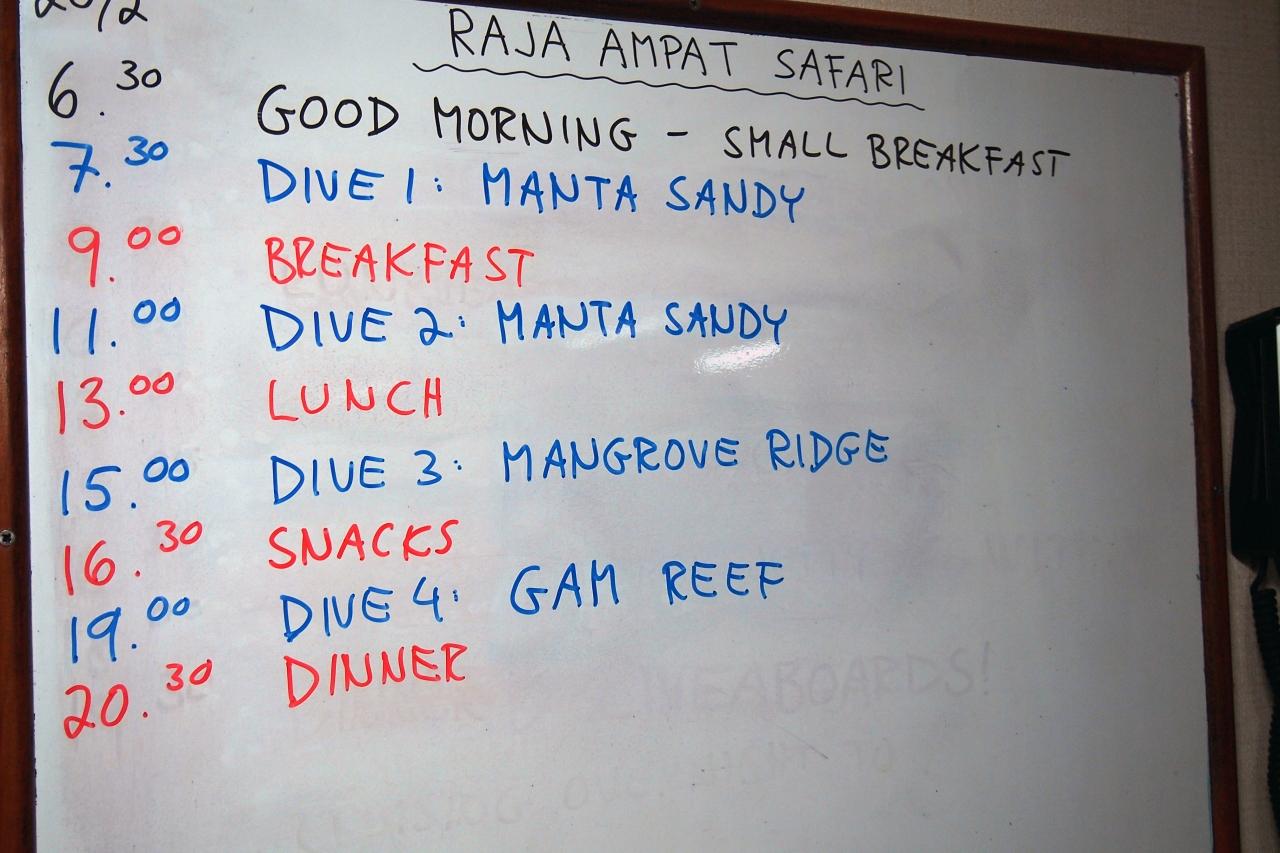 20/2
RAJA AMPAT SAFARI
6.30 GOOD MORNING - SMALL BREAKFAST
7.30 DIVE 1: MANTA SANDY
9.00 BREAKFAST
11.00 DIVE 2: MANTA SANDY
13.00 LUNCH
15.00 DIVE 3: MANGROVE RIDGE
16.30 SNACKS
19.00 DIVE 4: GAM REEF
20.30 DINNER